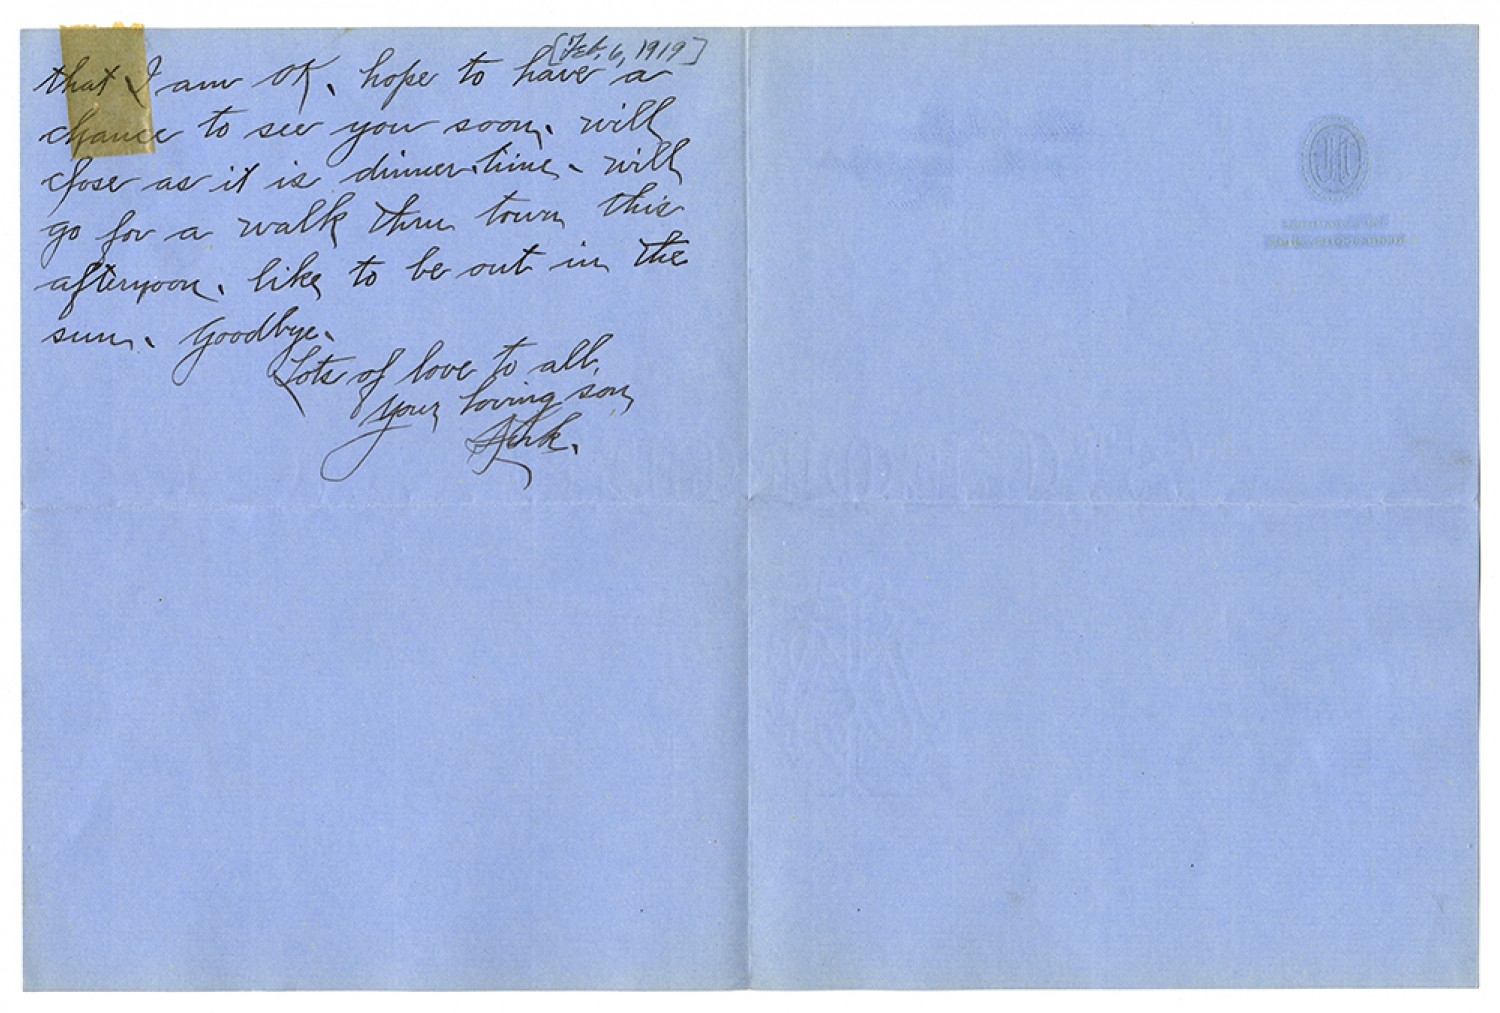 [Feb. 6, 1919]
that I am OK. hope to have a
chance to see you soon. will
close as it is dinner time. will
go for a walk thru town this
afternoon. like to be out in the
sun. Goodbye.
Lots of love to all,
Your loving son